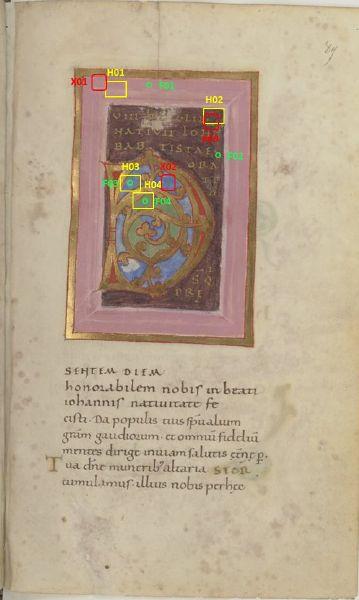 89
X01
H01
F01
H02
VIII KL IVLII
NATIVIT IOH
BAPTISTAE
F02
X02
H03
F03
H04
F04
PRE
SEPTEM DIEM
honorabilem nobis in beati
iohannis nativitate fe
cisti. Da populis tuis spiritualium
gratiam gaudiorum et omnium fidelium
mentes dirige in viam salutis
Tua dne munerib; altaria
cumulamus. illius nobis